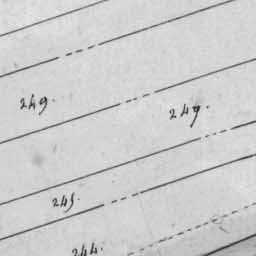 249.
249.
245.
244.